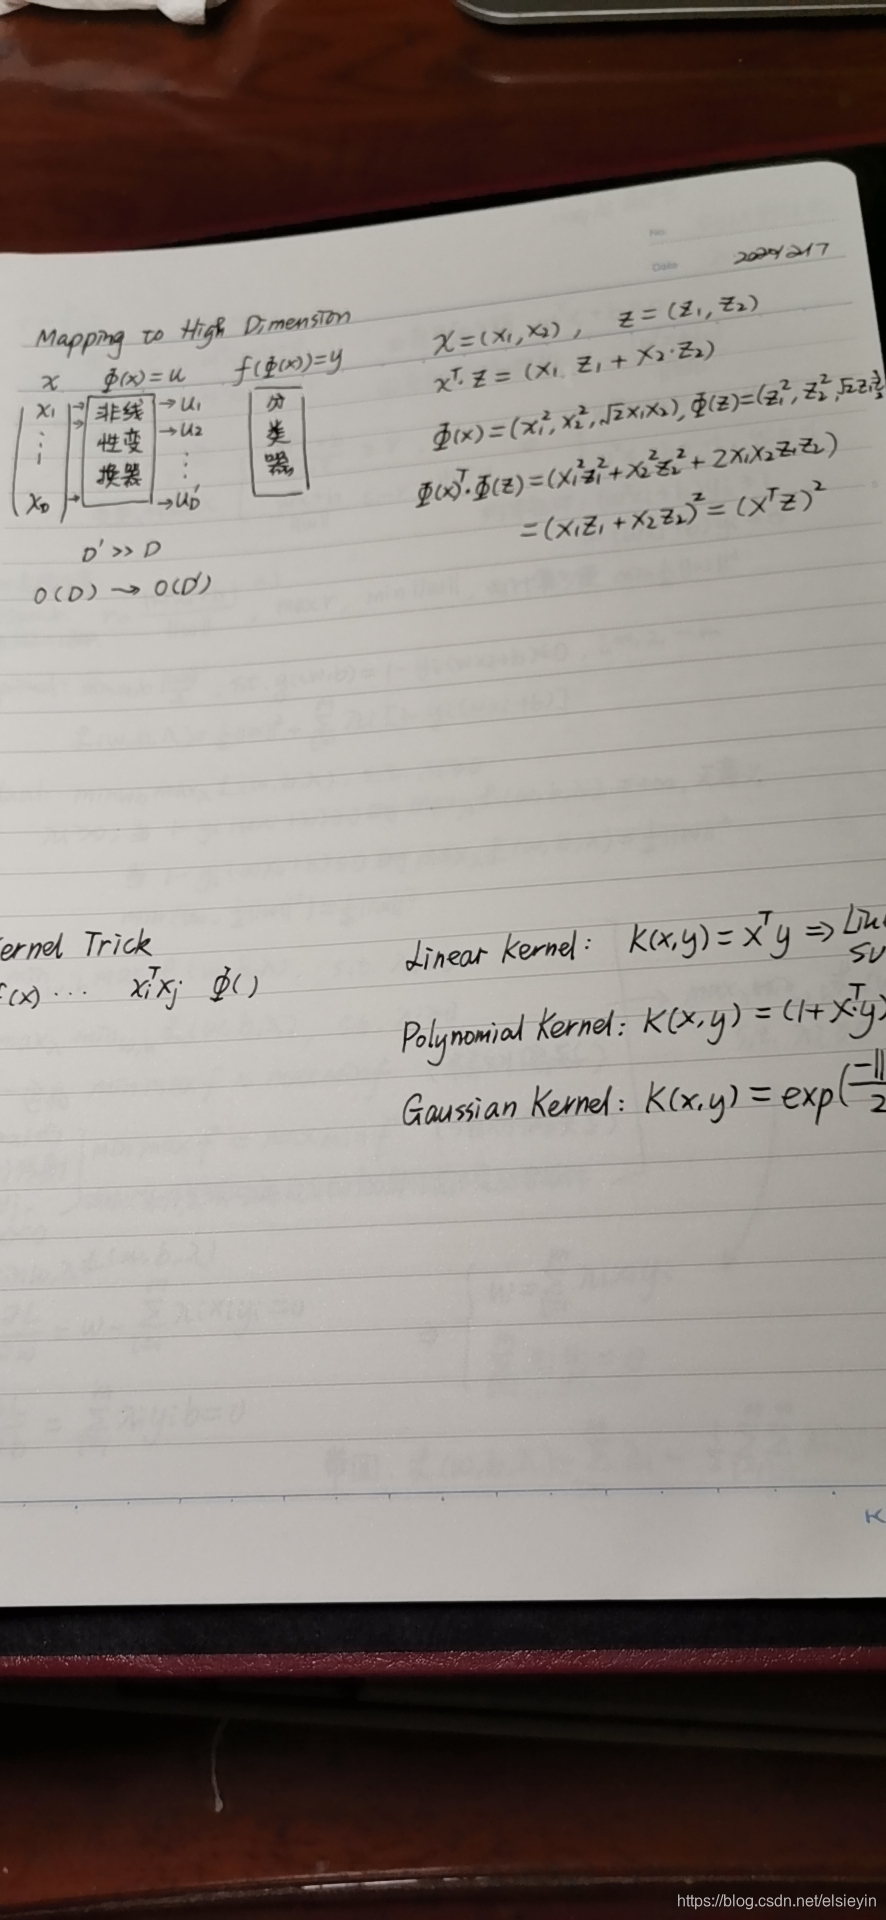 No.
Date
Mapping to High Dimension
x Φ(x)=u f(Φ(x))=y
x₁ 非线 → u₁ 分
⋮ 性变 → u₂ 类
换器 ⋮ 器
x_D → u_D'
D' >> D
O(D) → O(D')
x=(x₁,x₂), z=(z₁,z₂)
xᵀ·z=(x₁ z₁+x₂·z₂)
Φ(x)=(x₁²,x₂²,√2x₁x₂), Φ(z)=(z₁²,z₂²,√2z₁z₂
Φ(x)ᵀ·Φ(z)=(x₁²z₁²+x₂²z₂²+2x₁x₂z₁z₂)
=(x₁z₁+x₂z₂)²=(xᵀz)²
ernel Trick
f(x) ··· xᵢᵀxⱼ Φ( )
Linear Kernel: K(x,y)=xᵀy ⇒ Lin
SV
Polynomial Kernel: K(x,y)=(1+xᵀ·y)
Gaussian Kernel: K(x,y)=exp(−||
2
K
https://blog.csdn.net/elsieyin